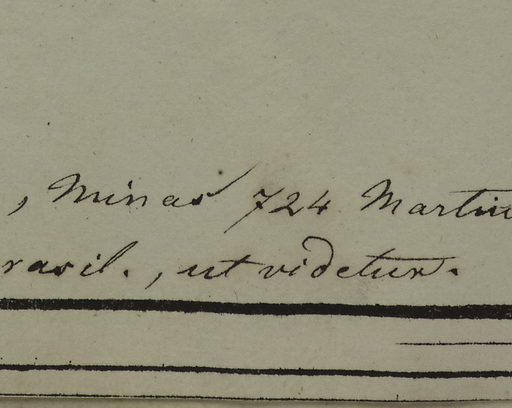 , Minas 724 Martiu
rasil., ut videtur.